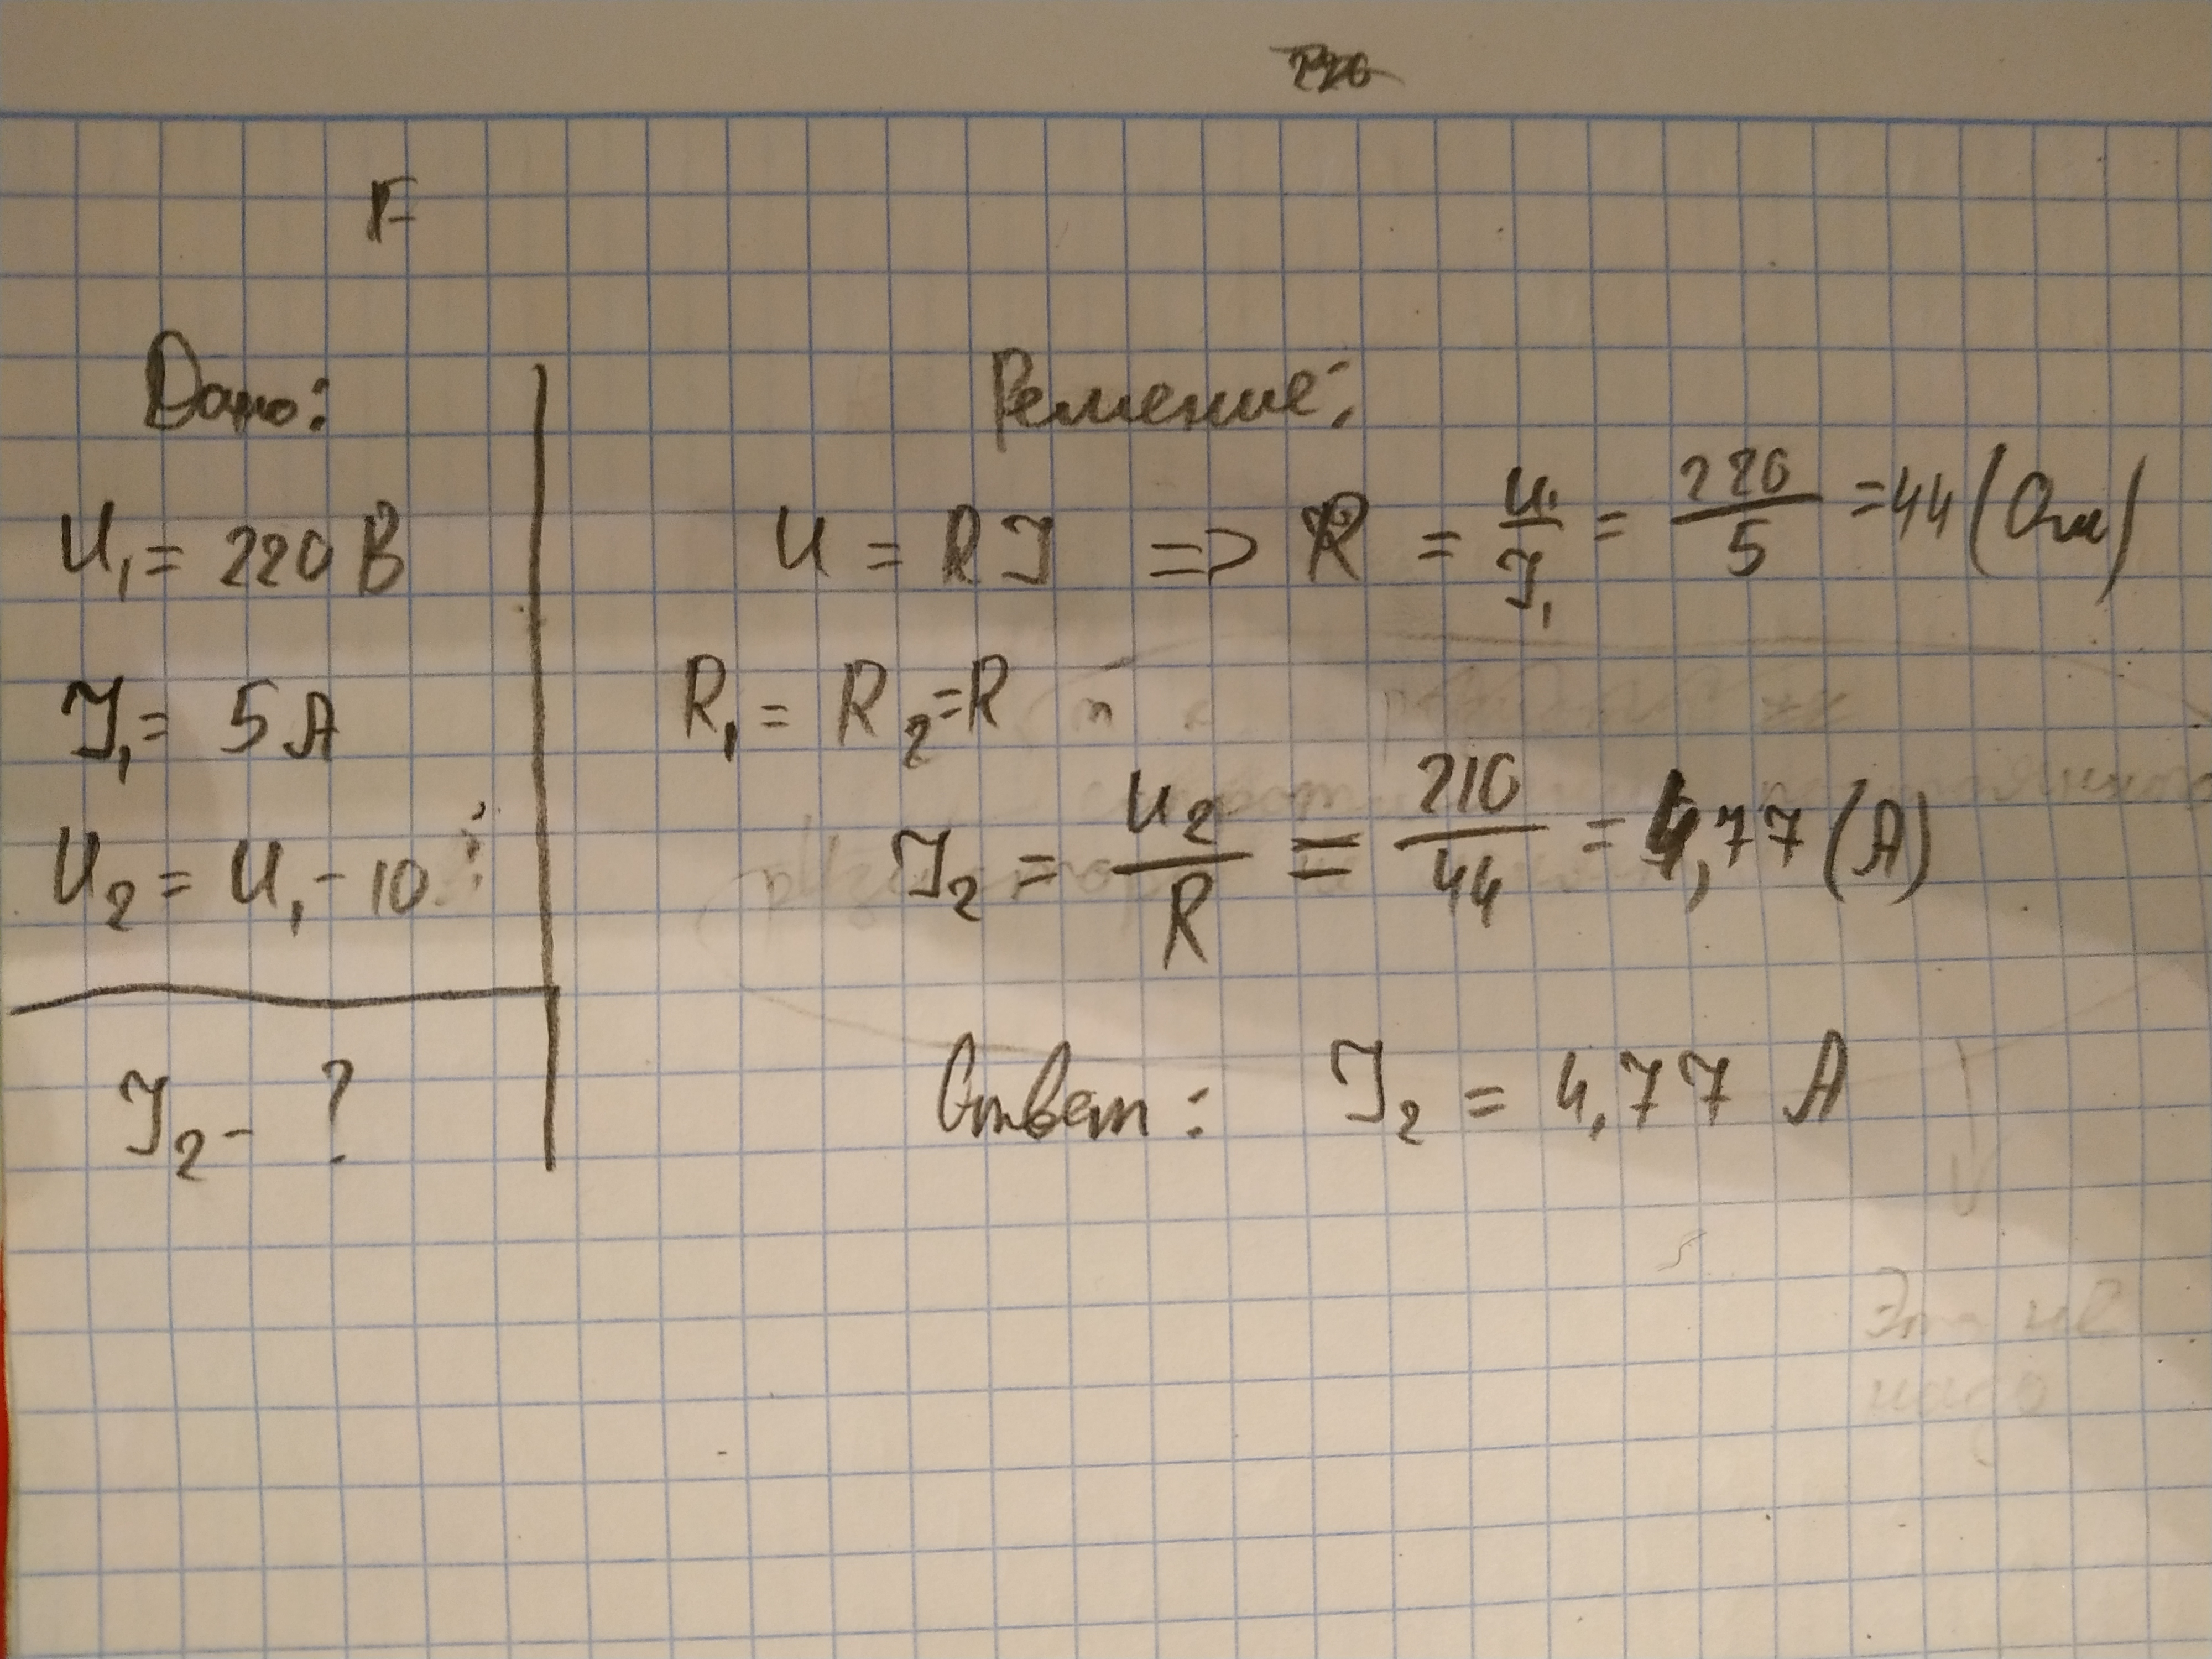 F
Дано:
U₁ = 220 В
I₁ = 5 А
U₂ = U₁ - 10
I₂ - ?
Решение:
U = RI => R = U₁/I₁ = 220/5 = 44 (Ом)
R₁ = R₂ = R
I₂ = U₂/R = 210/44 = 4,77 (А)
Ответ: I₂ = 4,77 А
Это не
надо